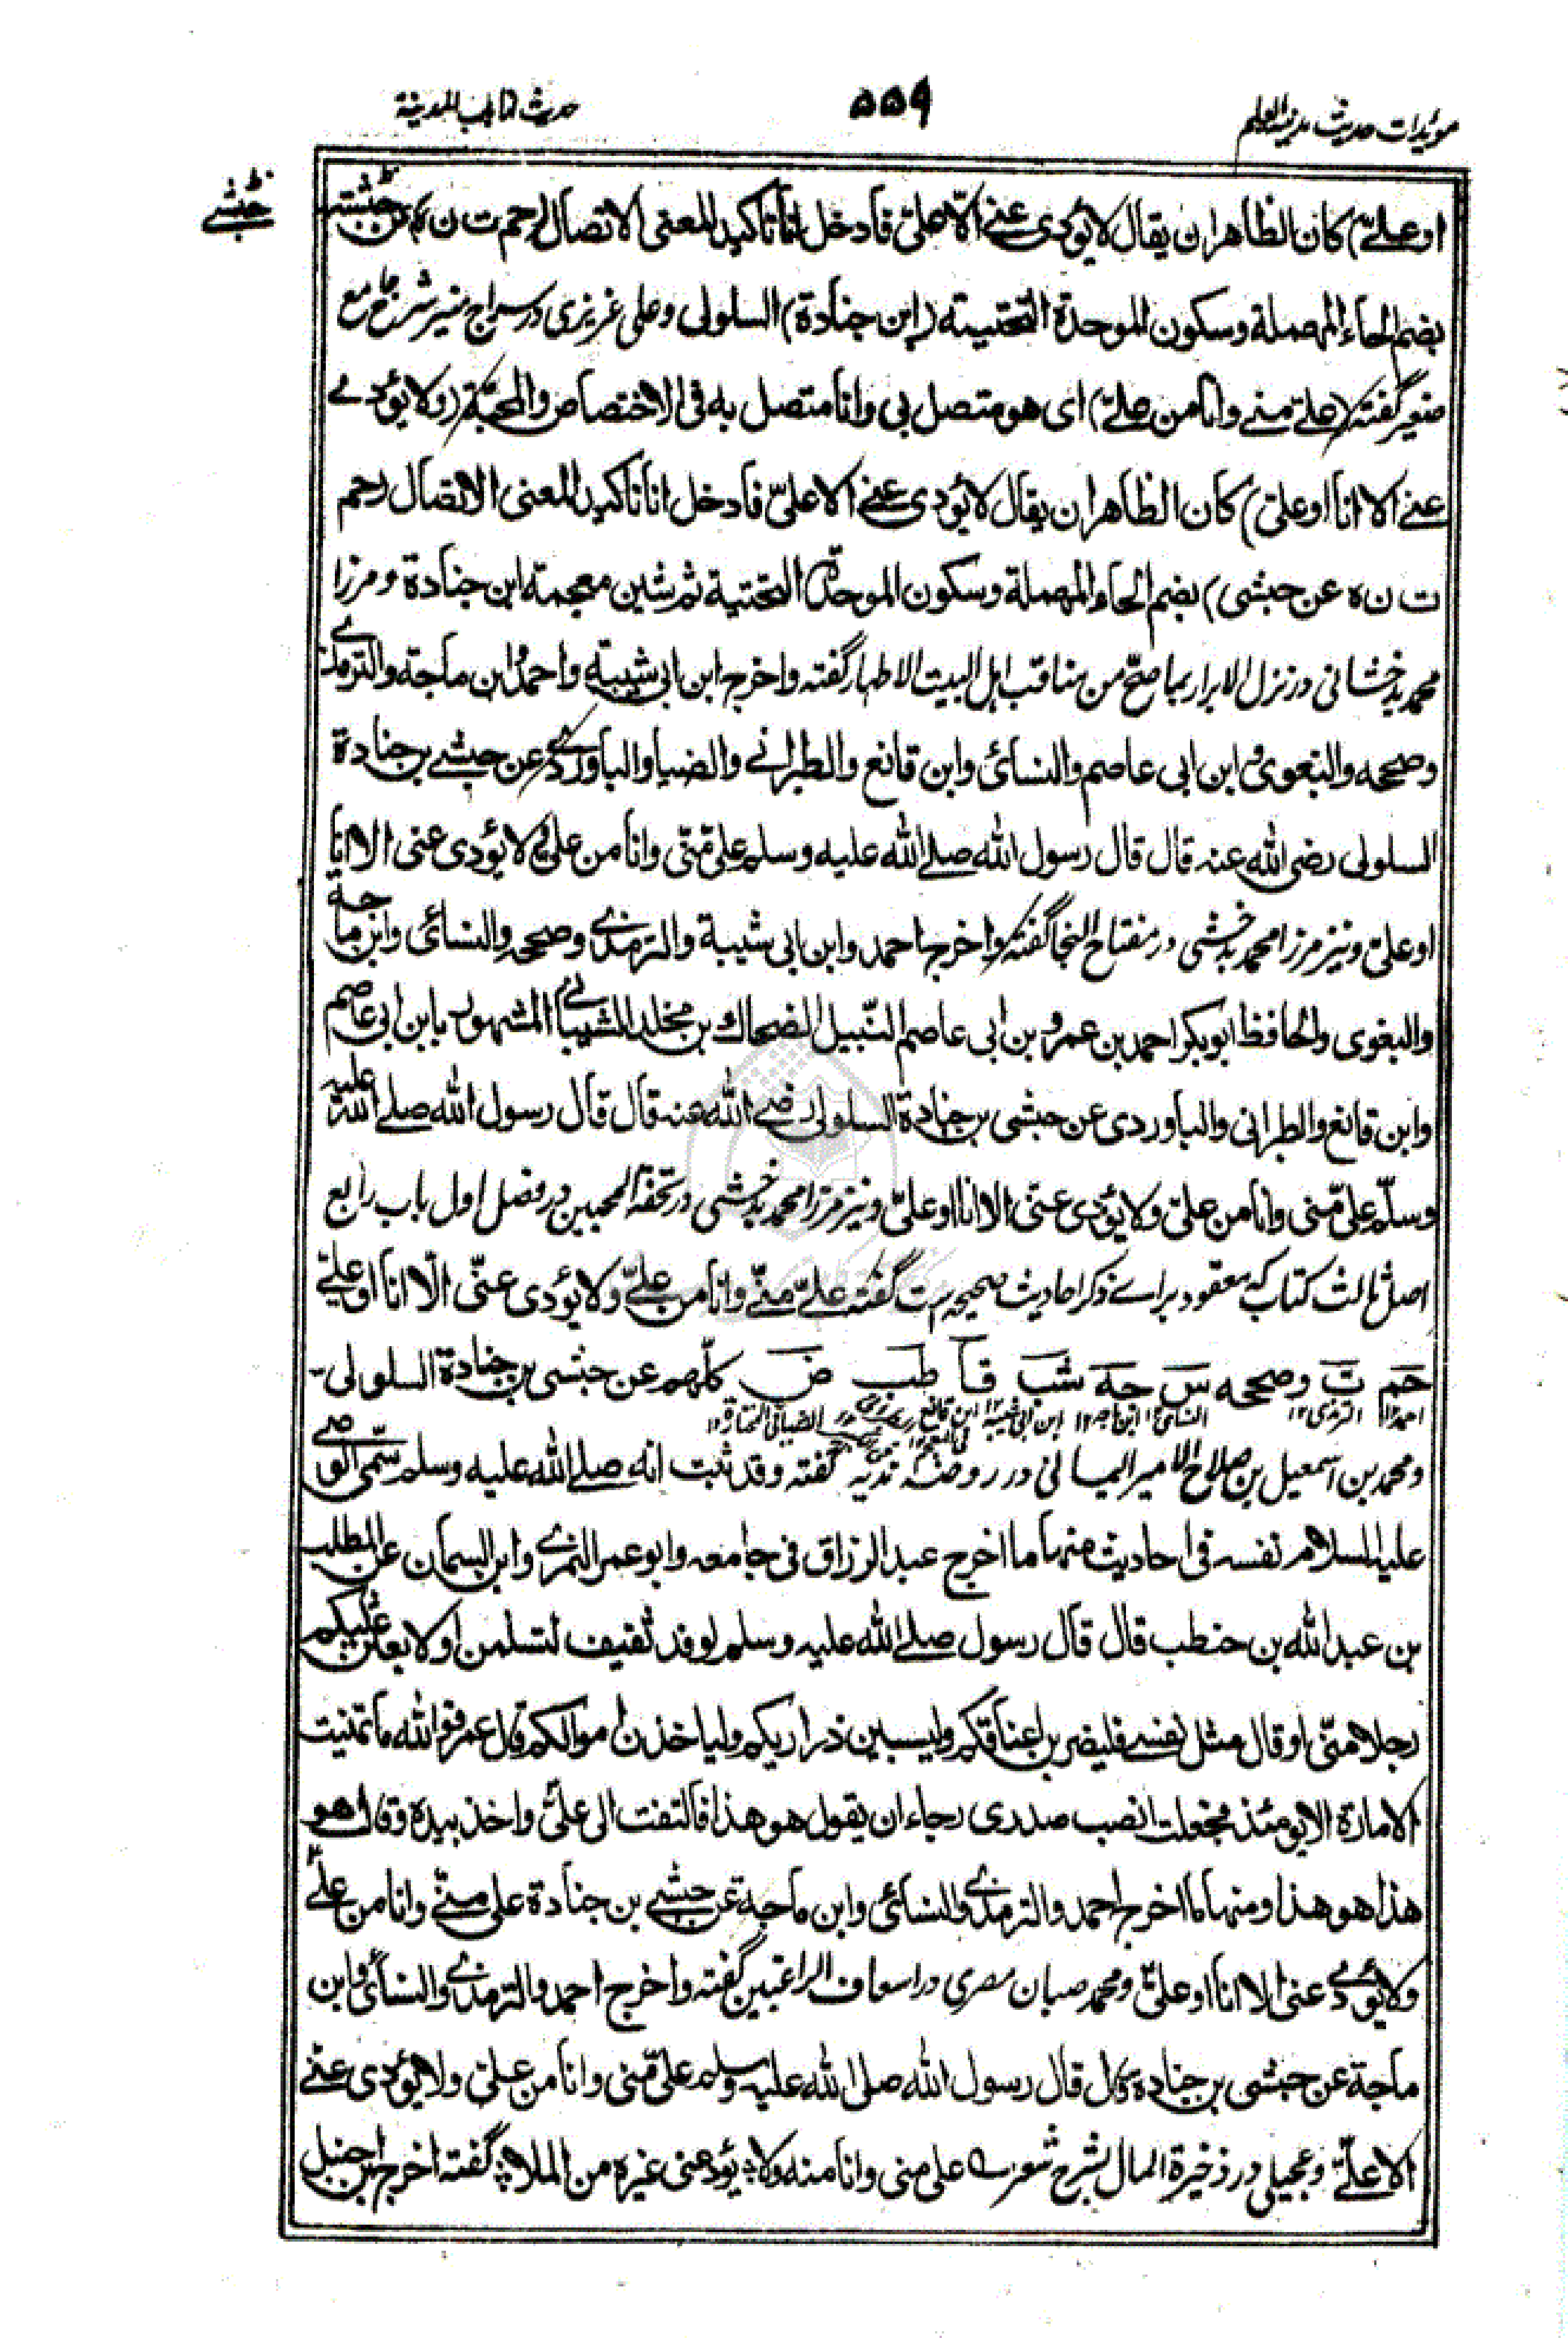 مؤیدات حدیث مدینة العلم
۵۵۹
حدیث انا باب المدینة
حبشی
او علیّ) کان الظاهر ان یقال لا یؤدی عنی الّا علیّ فادخل انا تاکیداً لمعنی الاتصال حم ت ن ه عن حبشی
بضم الحاء المهملة وسکون الموحدة التحتیة (ابن جنادة) السلولی وعلی عزیزی در سراج منیر شرح جامع
صغیر گفته (علیّ منی وانا من علیّ) ای هو متصل بی وانا متصل به فی الاختصاص والمحبّة (ولا یؤدی
عنی الا انا او علیّ) کان الظاهر ان یقال لا یؤدی عنی الا علیّ فادخل انا تاکیداً لمعنی الاتصال (حم
ت ن ه عن حبشی) بضم الحاء المهملة وسکون الموحدة التحتیة ثم شین معجمة ابن جنادة ومرزا
محمد بدخشانی در نزل الابرار بما صحّ من مناقب اهل البیت الاطهار گفته واخرج ابن ابی شیبة واحمد وابن ماجة والترمذی
وصححه والبغوی وابن ابی عاصم والنسائی وابن قانع والطبرانی والضیا والباوردی عن حبشی بن جنادة
السلولی رضی الله عنه قال قال رسول الله صلی الله علیه وسلم علیّ منّی وانا من علی لا یؤدی عنی الا انا
او علیّ ونیز مرزا محمد بدخشی در مفتاح النجا گفته واخرج احمد وابن ابی شیبة والترمذی وصححه والنسائی وابن ماجة
والبغوی والحافظ ابو بکر احمد بن عمرو بن ابی عاصم النّبیل الضحاک بن مخلد الشیبانی المشهور بابن ابی عاصم
وابن قانع والطبرانی والباوردی عن حبشی بن جنادة السلولی رضی الله عنه قال قال رسول الله صلی الله علیه
وسلّم علیّ منّی وانا من علیّ ولا یؤدی عنّی الا انا او علیّ ونیز مرزا محمد بدخشی در تحفة المحبین در فصل اول باب رابع
اصل ثالث کتاب که معقود برای ذکر احادیث صحیحه است گفته علیّ منّی وانا من علیّ ولا یؤدی عنّی الّا انا او علیّ
حم ت وصححه س جه شب قا طب ض کلّهم عن حبشی بن جنادة السلولی۔
احمد۱۲ الترمذی۱۲ النسائی۱۲ ابن ماجه۱۲ ابن ابی شیبة۱۲ ابن قانع الضیا فی المختارة۱۲
ومحمد بن اسمعیل بن صلاح الامیر الیمانی در روضه ندیه گفته وقد ثبت انه صلی الله علیه وسلم سمّی الوصی
علیه السلام نفسه فی احادیث منها ما اخرج عبد الرزاق فی جامعه وابو عمر النمری وابن السمان عن المطلب
بن عبد الله بن حنطب قال قال رسول صلی الله علیه وسلم لوفد ثقیف لتسلمن او لا بعثن علیکم
رجلا منّی او قال مثل نفسی فلیضربن اعناقکم ولیسبین ذراریکم ولیاخذن اموالکم قال عمر فوالله ما تمنیت
الامارة الا یومئذ فجعلت انصب صدری رجاء ان یقول هو هذا فالتفت الی علیّ واخذ بیده وقال هو
هذا هو هذا ومنها ما اخرج احمد والترمذی والنسائی وابن ماجة عن حبشی بن جنادة علی منّی وانا من علیّ
ولا یؤدی عنی الا انا او علیّ ومحمد صبان مصری در اسعاف الراغبین گفته واخرج احمد والترمذی والنسائی وابن
ماجة عن حبشی بن جنادة قال قال رسول الله صلی الله علیه وسلم علیّ منّی وانا من علیّ ولا یؤدی عنّی
الا علیّ وعجیلی در ذخیرة المال بشرح شعر علی منی وانا منه ولا یؤد عنی غیره من الملا گفته اخرج ابن حنبل